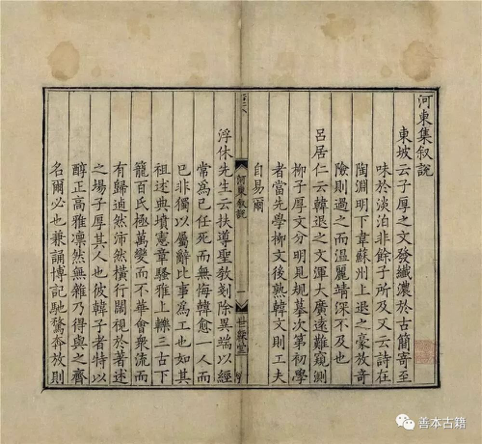 河東集叙說
東坡云子厚之文發纖濃於古簡寄至
味於淡泊非餘子所及又云詩在
陶淵明下韋蘇州上退之豪放奇
險則過之而温麗靖深不及也
呂居仁云韓退之文渾大廣遠難窺測
柳子厚文分明見規摹次第初學
者當先學柳文後熟韓文則工夫
自易爾
河東叙說
一
世綵堂
浮休先生云扶導聖敎剗除異端以經
常爲己任死而無悔韓愈一人而
已非獨以屬辭比事爲工也如其
祖述典墳憲章騷雅上轢三古下
籠百氏極萬變而不華會衆流而
有歸逌然沛然橫行闊視於著述
之塲子厚其人也彼韓子者特以
醇正高雅凛然無雜乃得與之齊
名爾必也兼誦博記馳騖奔放則
善本古籍